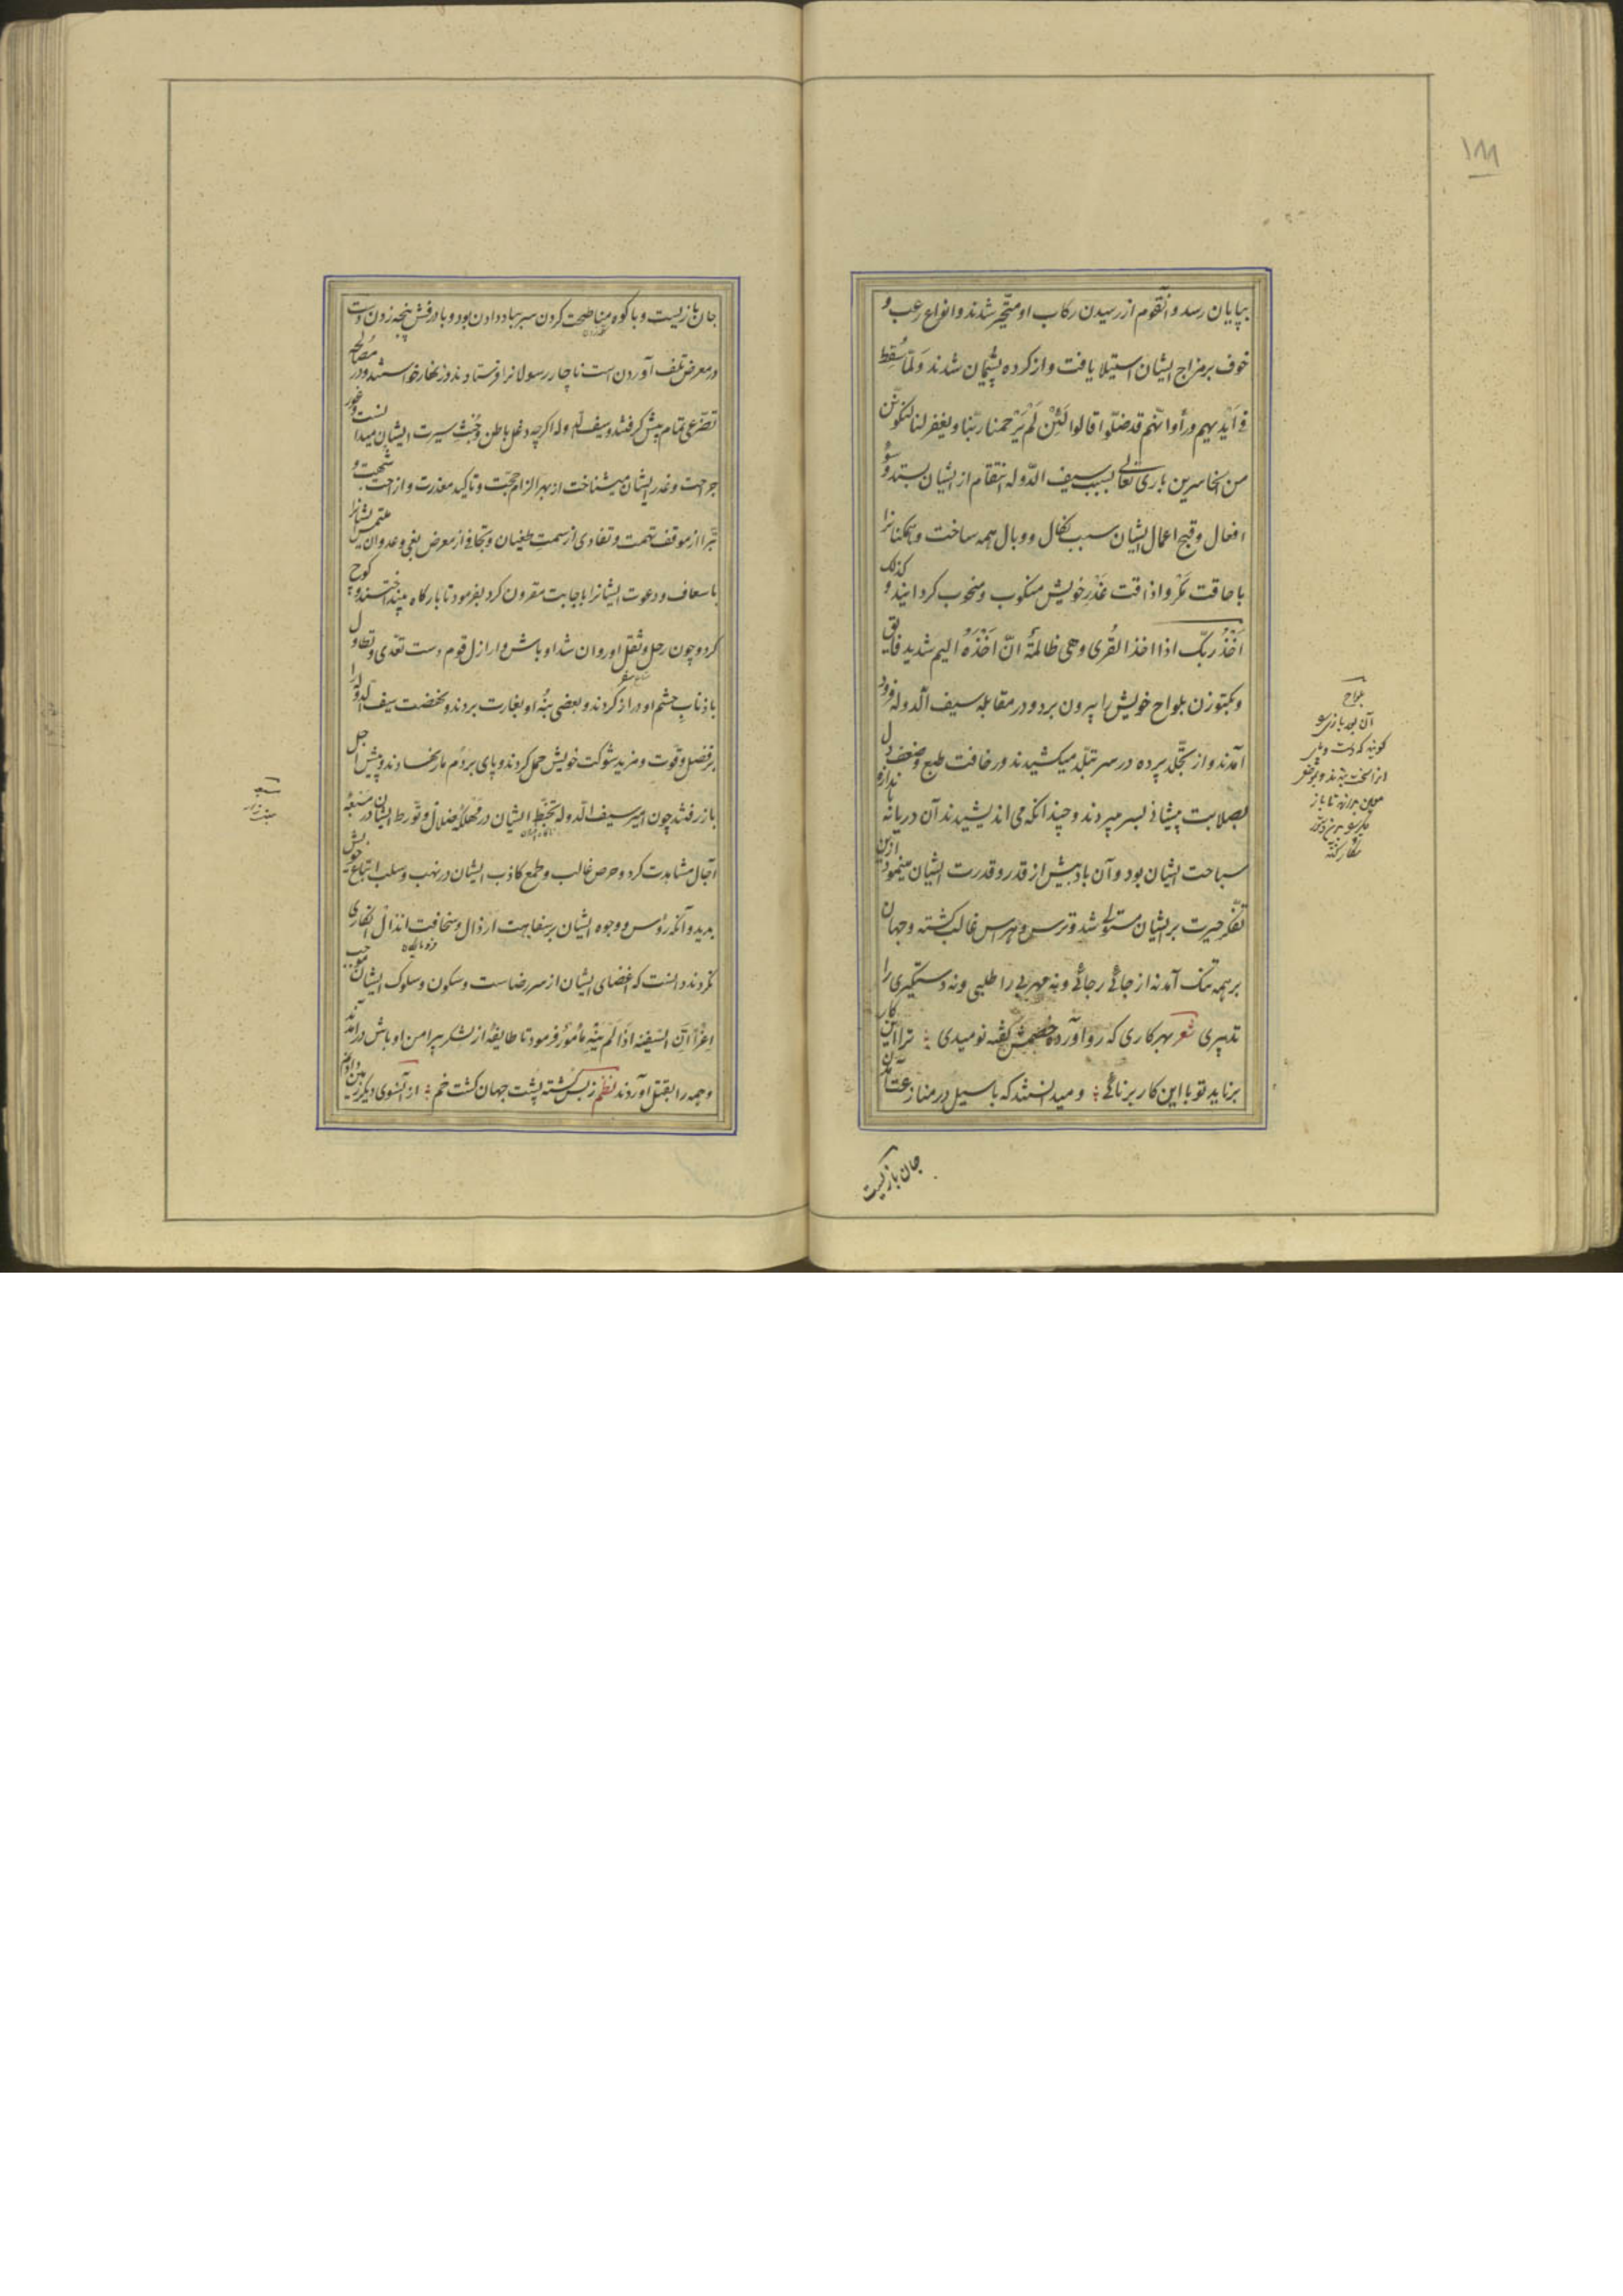 ۱۸۸
بپایان رسد و آنقوم از رسیدن رکاب او متحیر شدند و انواع رعب و
خوف بر مزاج ایشان استیلا یافت و از کرده پشیمان شدند وَلَمّا سُقِطَ
فی اَیْدیهِم ورأوا انّهم قد ضلّوا قالوا لَئِنْ لَمْ یَرْحمنا ربّنا ویغفر لنا لنکونَنَّ
من الخاسرین باری تعالی بسبب سیف الدّوله انتقام از ایشان بستد و سوء
افعال و قبح اعمال ایشان سبب نکال و وبال همه ساخت و همکنانرا
باحاقت مَکْر و اذاقت غَدْر خویش منکوب و منحوب کردانید و کذلک
اَخْذُ ربّک اذا اخذ القُری وهی ظالمةٌ انّ اَخْذَهُ الیم شدید فایق
و بکتوزن بلواح خویش را بیرون برد و در مقابله سیف الدّوله فرود
آمدند و از تجلّد پرده در سر تبلّد میکشیدند و رخافت طبع و ضعف دل
بصلابت پیشانی بسر میبردند و چندانکه می اندیشیدند آن دریا نه باندازه
سباحت ایشان بود و آن باد بیش از قدر و قدرت ایشان مینمود ازین
تفکر حیرت بر ایشان مستولی شد و ترس و هراس غالب کشته و جهان
بر همه تنک آمد نه از جائی رجائی و نه مهربی را طلبی و نه دستکیری را
تدبیری شعر بهر کاری که رو آورد خصمش کفته نومیدی ؛ ترا این کار
برناید تو با این کار برنائی ؛ و میدانستند که با سیل در منازعت آمدن
جان بازیست
بلواح
آن بود
جان بازیست و با کوه مناطحت کردن سر بباد دادن بود و با درفش پنجه زدن دست
در معرض تلف آوردن است ناچار رسولانرا فرستادند و زنهار خواستند و در مصالح
تضرّعی تمام پیش کرفتند و سیف الدوله اکرچه دغل باطن و خُبْث سیرت ایشان میدانست و غور
جراحت و غدر ایشان میشناخت از بهر الزام حجّت و تأکید معذرت و ازاحت شبهت و
تبرّا از موقف تهمت و تفادی از سمت طغیان و تجافی از معرض بغی و عدوان ملتمس ایشانرا
باسعاف و دعوت ایشانرا باجابت مقرون کرد بفرمود تا بارکاه بینداختند و کوچ
کرد و چون رحل و ثقل او روان شد اوباش و اراذل قوم دست تعدّی و تطاول
باذناب حشم او دراز کردند و بعضی بنهٔ او بغارت بردند و نهضت سیف الدوله را
بر فضل قوّت و مزید شوکت خویش حمل کردند و پای بر دُم مار نهادند و پیش اجل
باز رفتند چون امیر سیف الدّوله تخبّط ایشان در مهلکهٔ ضلال و تورط ایشان در
آجال مشاهدت کرد و حرص غالب و طمع کاذب ایشان در نهب و سلب اتباع خویش
بدید و آنکه رؤس و وجوه ایشان بر سفاهت ارذال و سخافت انذال انکاری
نکردند دانست که اغضای ایشان از سر رضاست و سکون و سلوک ایشان موجب
اغراءً انّ السّفیه اذا لم یُنْهَ مأمور فرمود تا طایفهٔ از لشکر پیرامن اوباش درآمدند
و همه را بقتل آوردند نظم ز بس کشته پشت جهان کشت خم ؛ از آنسوی دیکر